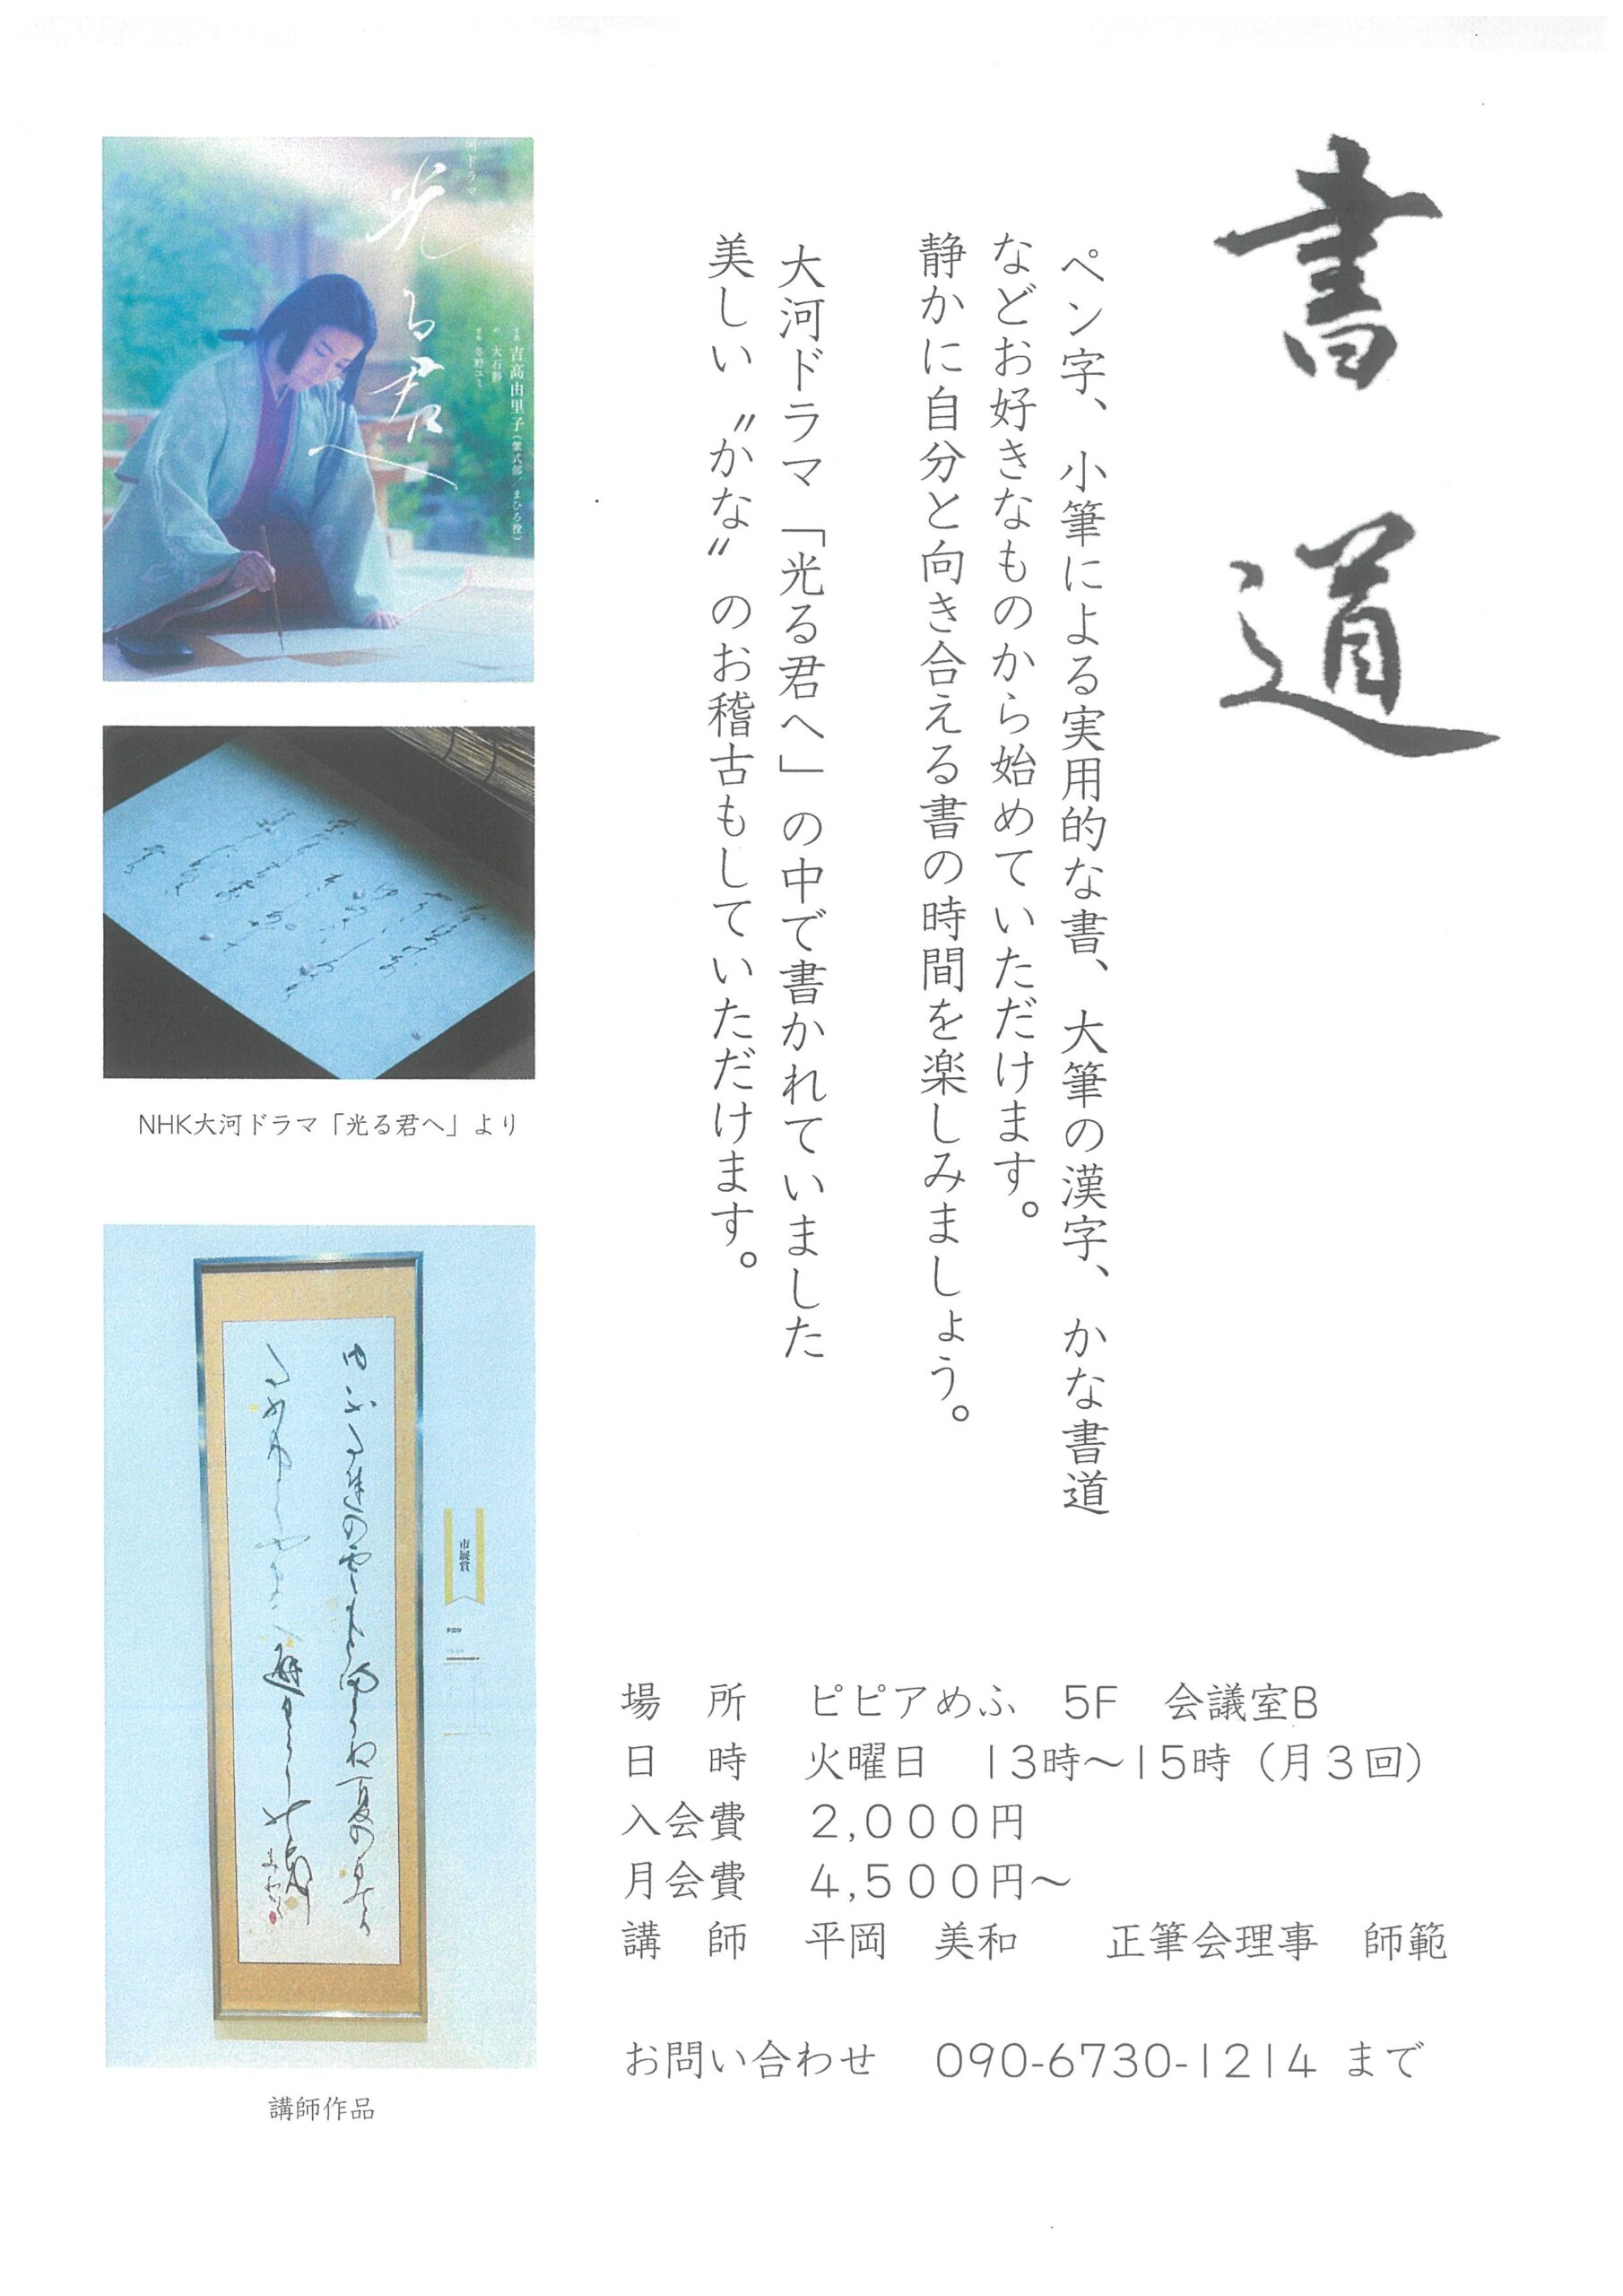 書道
ペン字、小筆による実用的な書、大筆の漢字、かな書道
などお好きなものから始めていただけます。
静かに自分と向き合える書の時間を楽しみましょう。
大河ドラマ「光る君へ」の中で書かれていました
美しい〝かな〟のお稽古もしていただけます。
光る君へ
吉高由里子(紫式部/まひろ役)
大石静
冬野ユミ
NHK大河ドラマ「光る君へ」より
市展賞
講師作品
場　所　ピピアめふ　5F　会議室B
日　時　火曜日　13時〜15時（月３回）
入会費　２,０００円
月会費　４,５００円〜
講　師　平岡　美和　　正筆会理事　師範
お問い合わせ　090-6730-1214 まで